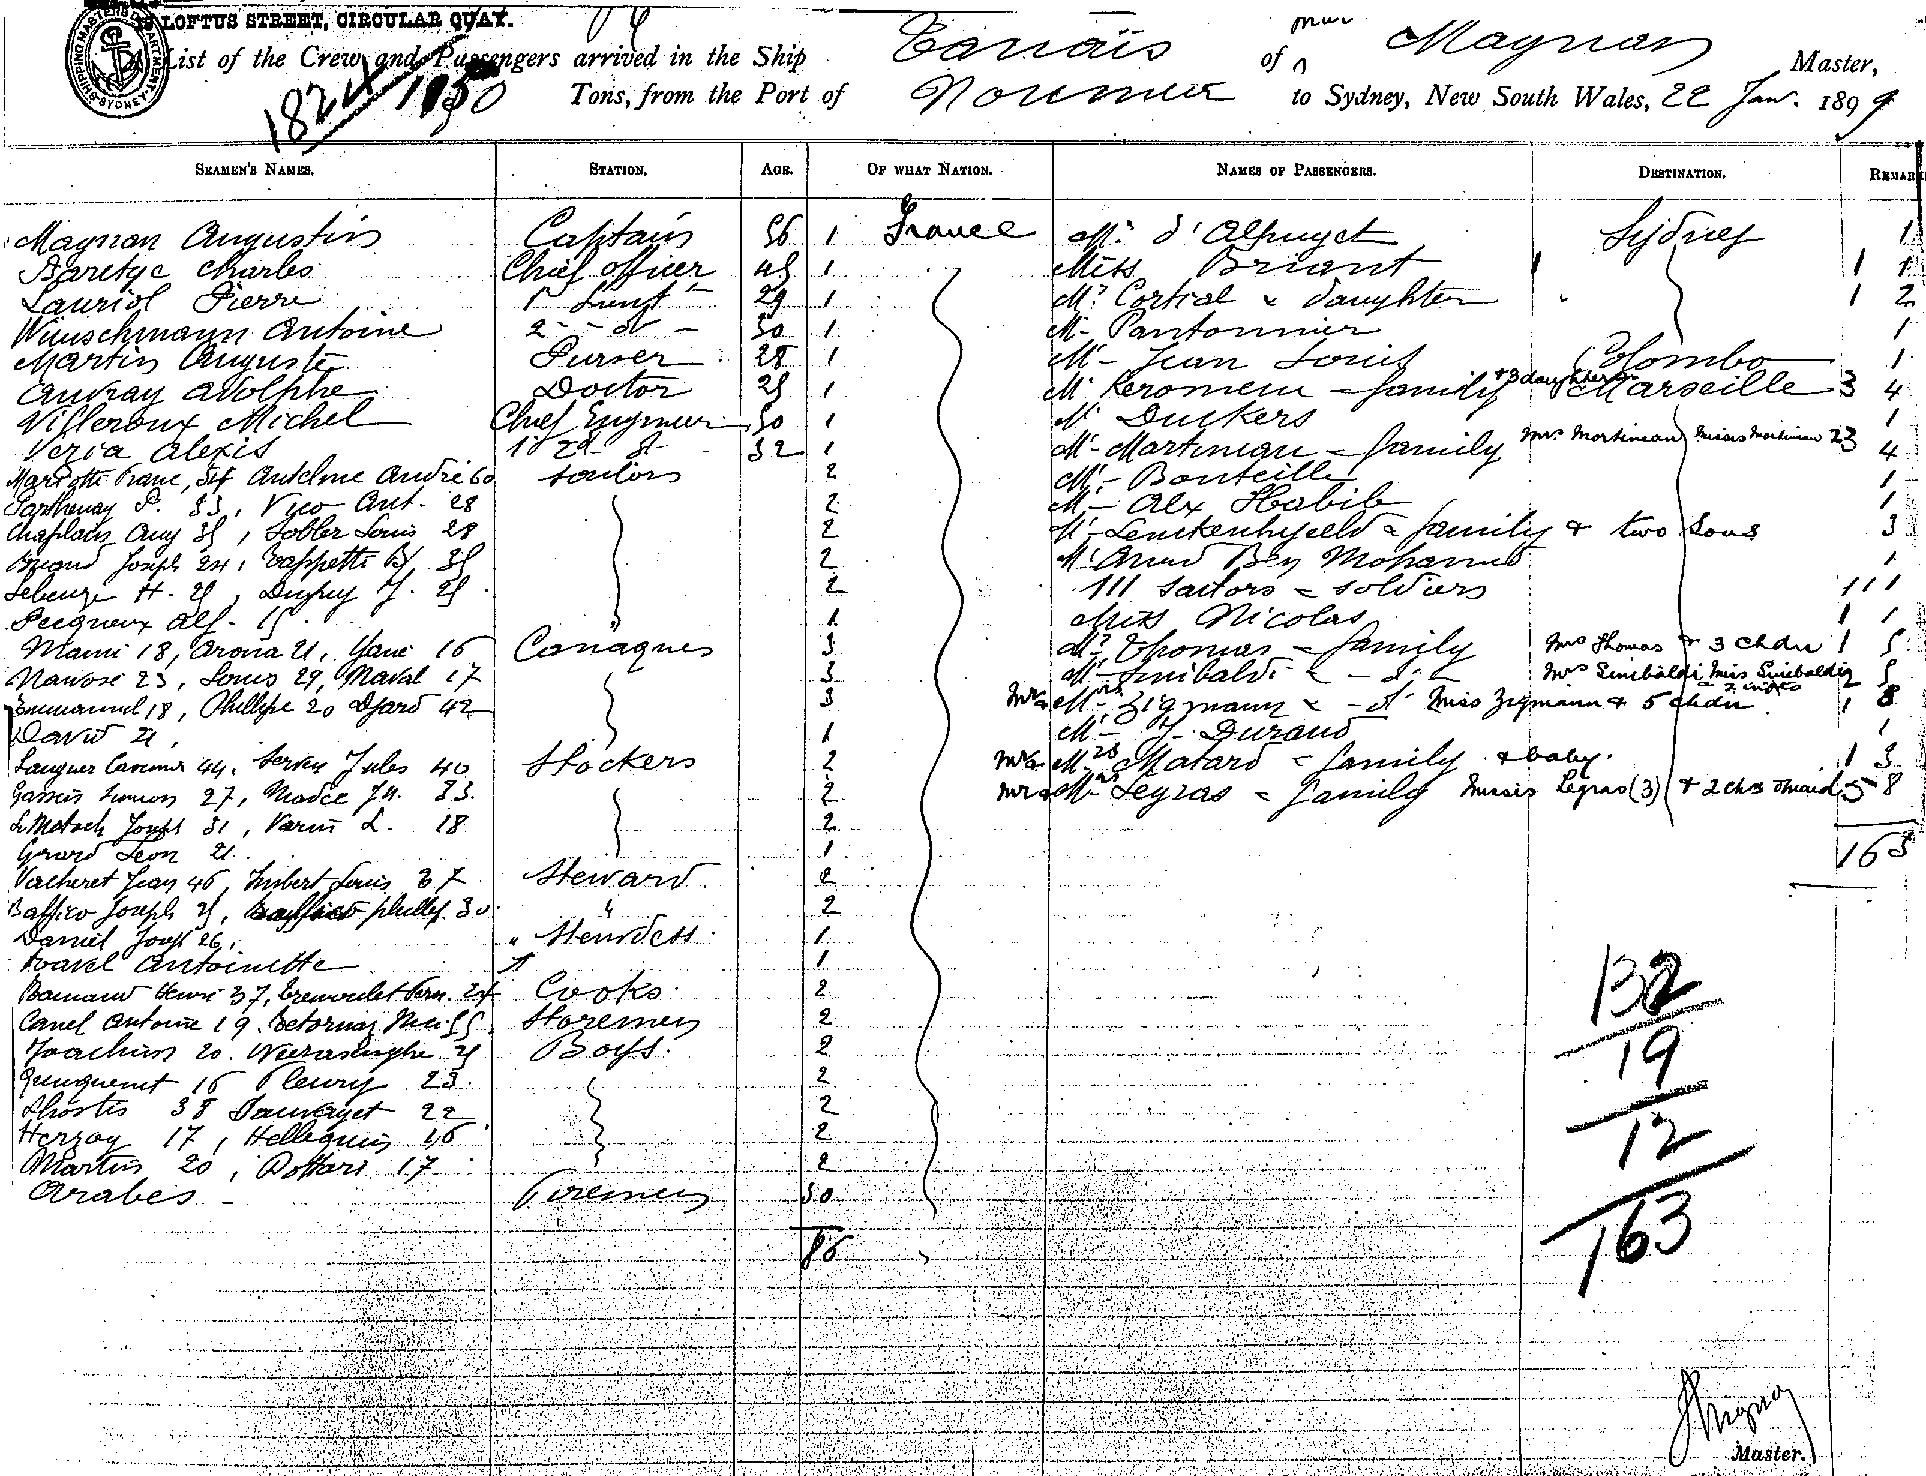 LOFTUS STREET, CIRCULAR QUAY.
SHIPPING MASTER'S DEPARTMENT SYDNEY
List of the Crew and Passengers arrived in the Ship Tanaïs of Magnan Master,
1824 Tons, from the Port of Noumea to Sydney, New South Wales, 22 Jan. 1899
SEAMEN'S NAMES. STATION. AGE. OF WHAT NATION. NAMES OF PASSENGERS. DESTINATION. REMAR
Magnan Augustin Captain 56 1 France Mr d'Alpuget Sydney 1
Charles Chief officer 45 1 Miss Briant 1 1
Lauriol Pierre 1 Lieut 29 1 Mr Cortial & daughter 1 2
Wunschmann Antoine 2 - d - 30 1 Mr Pantonnier 1
Martin Auguste Purser 28 1 Mr Jean Louis Colombo 1
Auvray Adolphe Doctor 25 1 Mr Keromem - family + 3 daughters Marseille 3 4
Villeroux Michel Chief Engineer 50 1 Mr Duckers 1
Veria Alexis 1 2d d 32 1 Mr Martineau - family Mrs Martineau Misses Martineau 2 3 4
Mariotti Franc, 54 Antelme André 60 sailors 2 Mr Bouteille 1
Parthenay P. 33, Vico Ant. 28 2 Mr Alex Habib 1
Chaplain Aug 35, Sobler Louis 28 2 Mr - family & two Sons 3
Briand Joseph 24, Tappetti 35 2 Mr Ben Mohamed 1
H. 25, Dupuy J. 25 2 111 sailors - soldiers 111
Alf. 15 1 Miss Nicolas 1 1
Mami 18, Arona 21, Yane 16 Canaques 3 Mr Thomas - family Mrs Thomas & 3 chdn 1 5
Nawose 23, Louis 29, Naval 17 3 Mr Sinibaldi - d - Mrs Sinibaldi Miss Sinibaldi 2 5
Emmanuel 18, Phillipe 20 Djard 42 3 Mrs Zigmann - d Miss Zigmann & 5 chdn 1 8
David 21, 1 Mr J. Durand 1
44, Jules 40 Stockers 2 Mrs Matard - family & baby. 1 3
27, 33. 2 Mrs Legras - family Misses Legras (3) + 2 chs & maid 5 8
Joseph 31, Varin L. 18 2
Girard Leon 21. 1
163
Vacheret Jean 46, Imbert Louis 37 Steward 2
Baffico Joseph 25, Baffico phillip. 30 " 2
Daniel Joseph 26, " Stewdess 1
Antoinette 1
Henri 37, 24 Cooks 2
Canel Antoine 19. 55 Storemen 2
Joachim 20. Weerasinghe 25 Boys. 2
16 Fleury 23. 2
38 Sauvaget 22 2
Herzog 17, Hellequin 16 2
Martin 20, 17 2
Arabes - Firemen 30
86
132
19
12
163
Magnan
Master.